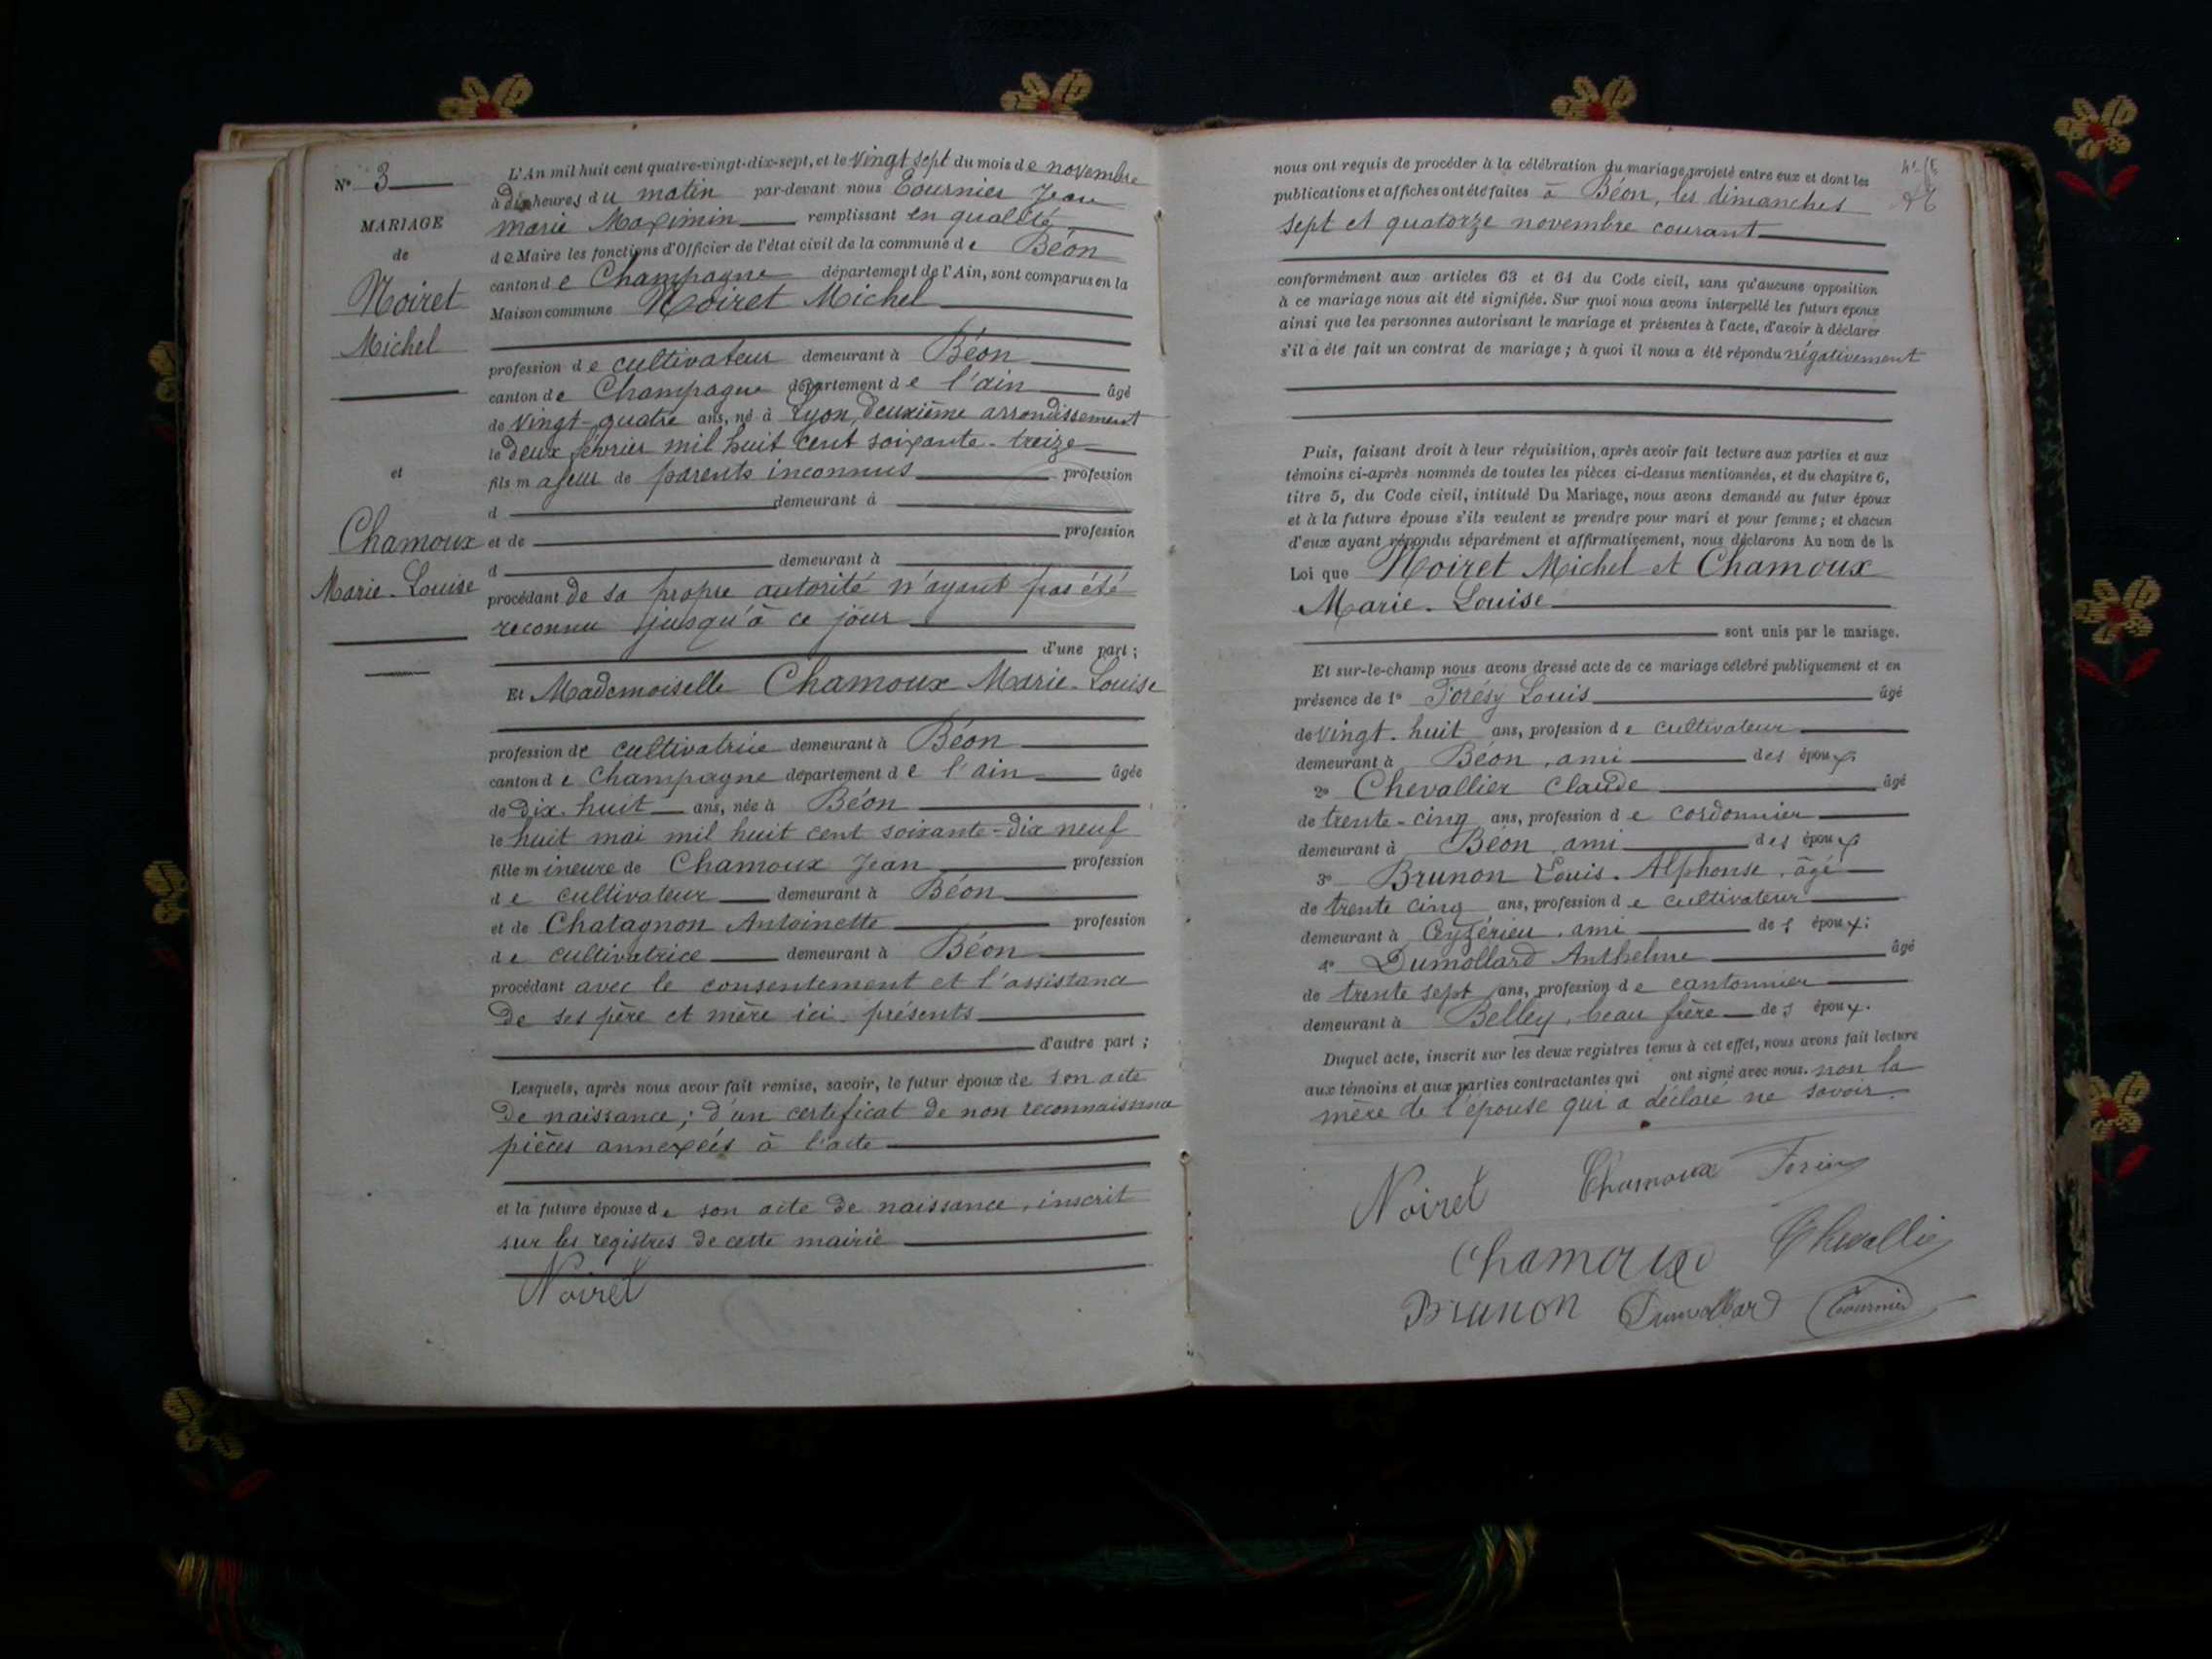 N° 3
MARIAGE
de
Noiret
Michel
et
Chamoux
Marie-Louise
L'An mil huit cent quatre-vingt-dix-sept, et le vingt sept du mois de novembre
à dix heures du matin par-devant nous Tournier Jean
marie Maximin remplissant en qualité
de Maire les fonctions d'Officier de l'état civil de la commune de Béon
canton de Champagne département de l'Ain, sont comparus en la
Maison commune Noiret Michel
profession de cultivateur demeurant à Béon
canton de Champagne département de l'ain âgé
de vingt-quatre ans, né à Lyon, deuxième arrondissement
le deux février mil huit cent soixante-treize
fils majeur de parents inconnus profession
d demeurant à
et de profession
d demeurant à
procédant de sa propre autorité n'ayant pas été
reconnu jusqu'à ce jour
d'une part ;
Et Mademoiselle Chamoux Marie-Louise
profession de cultivatrice demeurant à Béon
canton de Champagne département de l'ain âgée
de dix-huit ans, née à Béon
le huit mai mil huit cent soixante-dix neuf
fille mineure de Chamoux Jean profession
de cultivateur demeurant à Béon
et de Chatagnon Antoinette profession
de cultivatrice demeurant à Béon
procédant avec le consentement et l'assistance
de ses père et mère ici présents
d'autre part ;
Lesquels, après nous avoir fait remise, savoir, le futur époux de son acte
de naissance ; d'un certificat de non reconnaissance
pièces annexées à l'acte
et la future épouse de son acte de naissance, inscrit
sur les registres de cette mairie
Noiret
nous ont requis de procéder à la célébration du mariage projeté entre eux et dont les
publications et affiches ont été faites à Béon, les dimanches
sept et quatorze novembre courant
conformément aux articles 63 et 64 du Code civil, sans qu'aucune opposition
à ce mariage nous ait été signifiée. Sur quoi nous avons interpellé les futurs époux
ainsi que les personnes autorisant le mariage et présentes à l'acte, d'avoir à déclarer
s'il a été fait un contrat de mariage ; à quoi il nous a été répondu négativement
Puis, faisant droit à leur réquisition, après avoir fait lecture aux parties et aux
témoins ci-après nommés de toutes les pièces ci-dessus mentionnées, et du chapitre 6,
titre 5, du Code civil, intitulé Du Mariage, nous avons demandé au futur époux
et à la future épouse s'ils veulent se prendre pour mari et pour femme ; et chacun
d'eux ayant répondu séparément et affirmativement, nous déclarons Au nom de la
Loi que Noiret Michel et Chamoux
Marie-Louise
sont unis par le mariage.
Et sur-le-champ nous avons dressé acte de ce mariage célébré publiquement et en
présence de 1° Forésy Louis âgé
de vingt-huit ans, profession de cultivateur
demeurant à Béon, ami des époux
2° Chevallier Claude âgé
de trente-cinq ans, profession de cordonnier
demeurant à Béon, ami des époux
3° Brunon Louis-Alphonse, âgé
de trente cinq ans, profession de cultivateur
demeurant à Ceyzérieu, ami des époux ;
4° Dumollard Anthelme âgé
de trente sept ans, profession de cantonnier
demeurant à Belley, beau frère des époux.
Duquel acte, inscrit sur les deux registres tenus à cet effet, nous avons fait lecture
aux témoins et aux parties contractantes qui ont signé avec nous. non la
mère de l'épouse qui a déclaré ne savoir.
Noiret Chamoux
Chamoux Chevallier
Brunon Dumollard Tournier